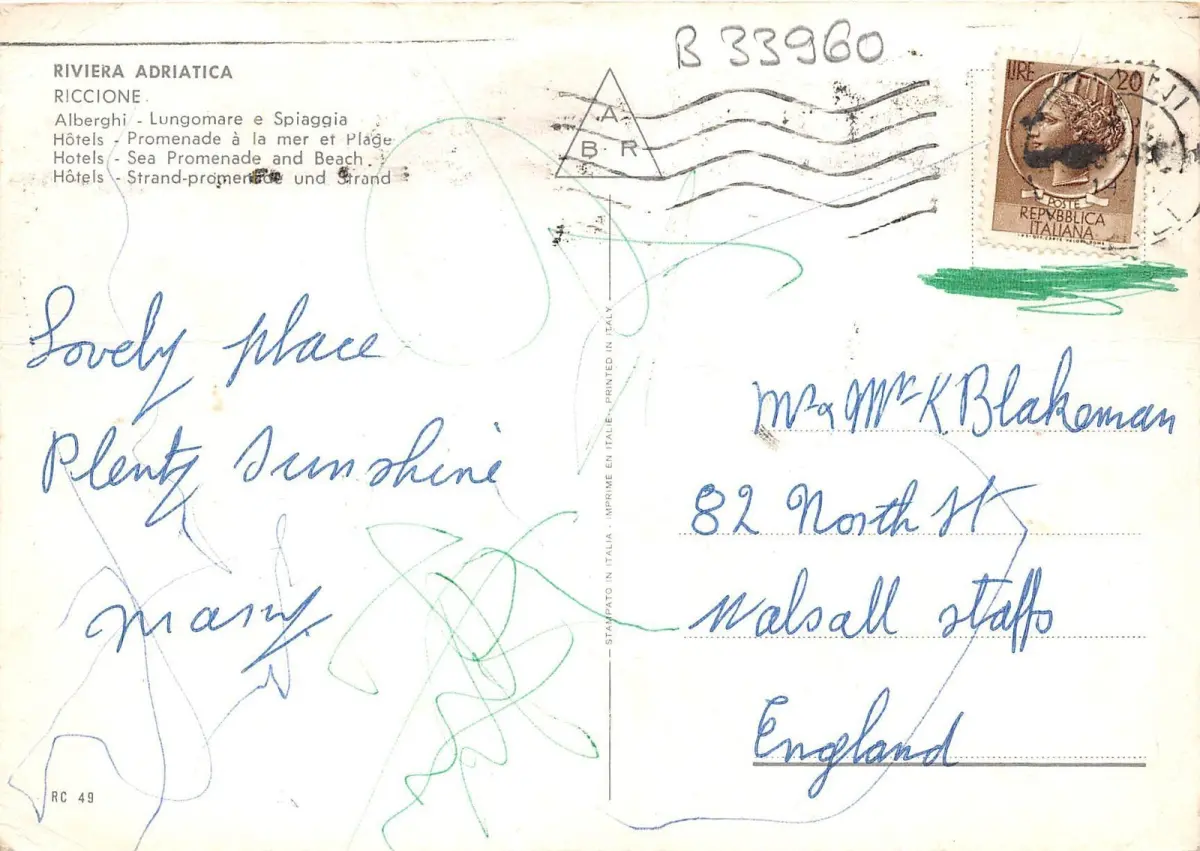 B 33960
RIVIERA ADRIATICA
RICCIONE
Alberghi - Lungomare e Spiaggia
Hôtels - Promenade à la mer et Plage
Hotels - Sea Promenade and Beach
Hôtels - Strand-promenade und Strand
A
B R
LIRE 20
POSTE
REPVBBLICA
ITALIANA
Lovely place
Plenty Sunshine
Mary.
STAMPATO IN ITALIA - IMPRIME EN ITALIE - PRINTED IN ITALY
Mr & Mrs K. Blakeman
82 North St
Walsall Staffs
England
RC 49